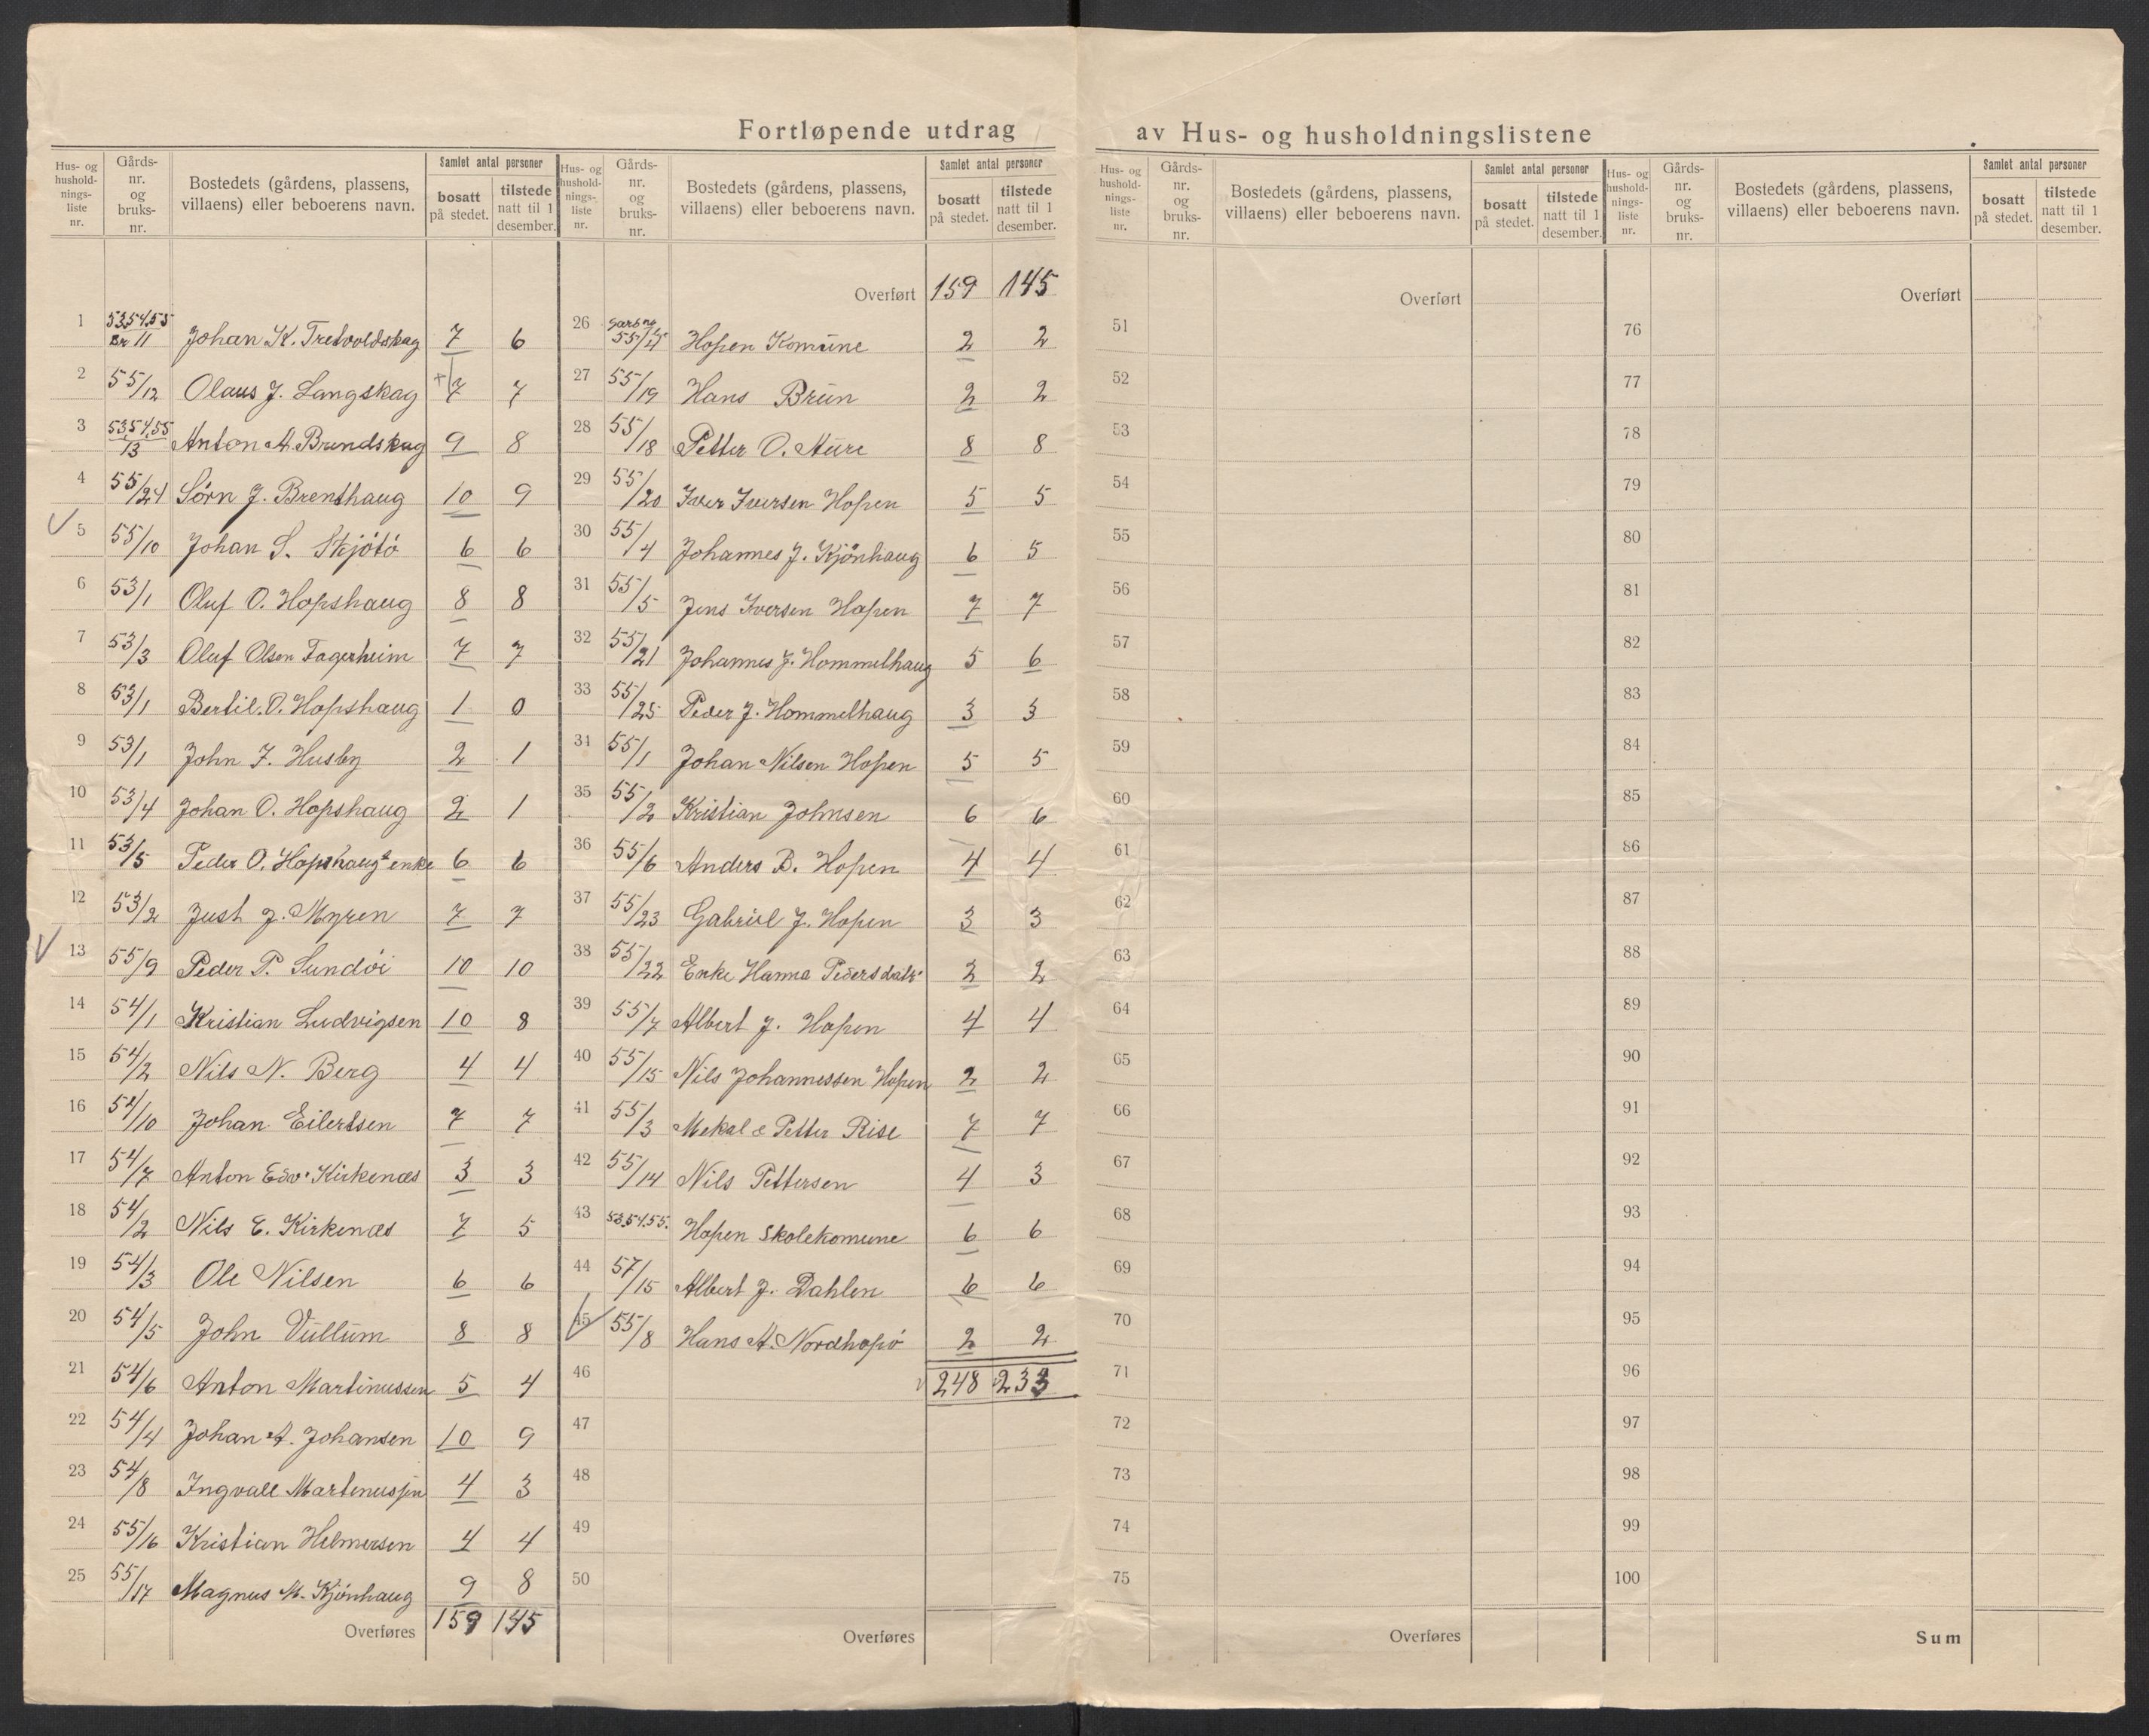 Fortløpende utdrag av Hus- og husholdningslistene
Hus- og husholdnings- liste nr. | Gårds- nr. og bruks- nr. | Bostedets (gårdens, plassens, villaens) eller beboerens navn. | Samlet antal personer bosatt på stedet. | tilstede natt til 1 desember.
1 53.54.55 Br 11 Johan K. Tretvoldskag 7 6
2 55/12 Olaus J. Langskag + 7 7
3 53.54.55/13 Anton A. Brundskag 9 8
4 55/24 Sörn J. Brenthaug 10 9
5 55/10 Johan S. Skjötö 6 6
6 53/1 Oluf O. Hopshaug 8 8
7 53/3 Oluf Olsen Fagerheim 7 7
8 53/1 Bertil. O. Hopshaug 1 0
9 53/1 John J. Husby 2 1
10 53/4 Johan O. Hopshaug 2 1
11 53/5 Peder O. Hopshaugs enke 6 6
12 53/2 Just J. Myren 7 7
13 55/9 Peder P. Sundöi 10 10
14 54/1 Kristian Ludvigsen 10 8
15 54/2 Nils N. Berg 4 4
16 54/10 Johan Eilertsen 7 7
17 54/7 Anton Edv. Kirkenæs 3 3
18 54/2 Nils E. Kirkenæs 7 5
19 54/3 Ole Nilsen 6 6
20 54/5 John Vullum 8 8
21 54/6 Anton Martinussen 5 4
22 54/4 Johan A. Johansen 10 9
23 54/8 Ingvall Martenussen 4 3
24 55/16 Kristian Helmersen 4 4
25 55/17 Magnus M. Kjönhaug 9 8
Overføres 159 145
Hus- og husholdnings- liste nr. | Gårds- nr. og bruks- nr. | Bostedets (gårdens, plassens, villaens) eller beboerens navn. | Samlet antal personer bosatt på stedet. | tilstede natt til 1 desember.
Overført 159 145
26 Hopen Komune 2 2
27 55/19 Hans Brun 2 2
28 55/18 Petter O. Aure 8 8
29 55/20 Iver Iversen Hopen 5 5
30 55/4 Johannes J. Kjönhaug 6 5
31 55/5 Jens Iversen Hopen 7 7
32 55/21 Johannes J. Hommelhaug 5 6
33 55/25 Peder J. Hommelhaug 3 3
34 55/1 Johan Nilsen Hopen 5 5
35 55/2 Kristian Johnsen 6 6
36 55/6 Anders B. Hopen 4 4
37 55/23 Gabriel J. Hopen 3 3
38 55/22 Enke Hanna Pedersdatr 2 2
39 55/7 Albert J. Hopen 4 4
40 55/15 Nils Johannessen Hopen 2 2
41 55/3 Mekal & Petter Rise 7 7
42 55/14 Nils Pettersen 4 3
43 53.54.55. Hopen Skolekomune 6 6
44 57/15 Albert J. Dahlen 6 6
45 55/8 Hans A. Nordhopö 2 2
46 248 233
47
48
49
50
Overføres
Hus- og husholdnings- liste nr. | Gårds- nr. og bruks- nr. | Bostedets (gårdens, plassens, villaens) eller beboerens navn. | Samlet antal personer bosatt på stedet. | tilstede natt til 1 desember.
Overført
51
52
53
54
55
56
57
58
59
60
61
62
63
64
65
66
67
68
69
70
71
72
73
74
75
Overføres
Hus- og husholdnings- liste nr. | Gårds- nr. og bruks- nr. | Bostedets (gårdens, plassens, villaens) eller beboerens navn. | Samlet antal personer bosatt på stedet. | tilstede natt til 1 desember.
Overført
76
77
78
79
80
81
82
83
84
85
86
87
88
89
90
91
92
93
94
95
96
97
98
99
100
Sum